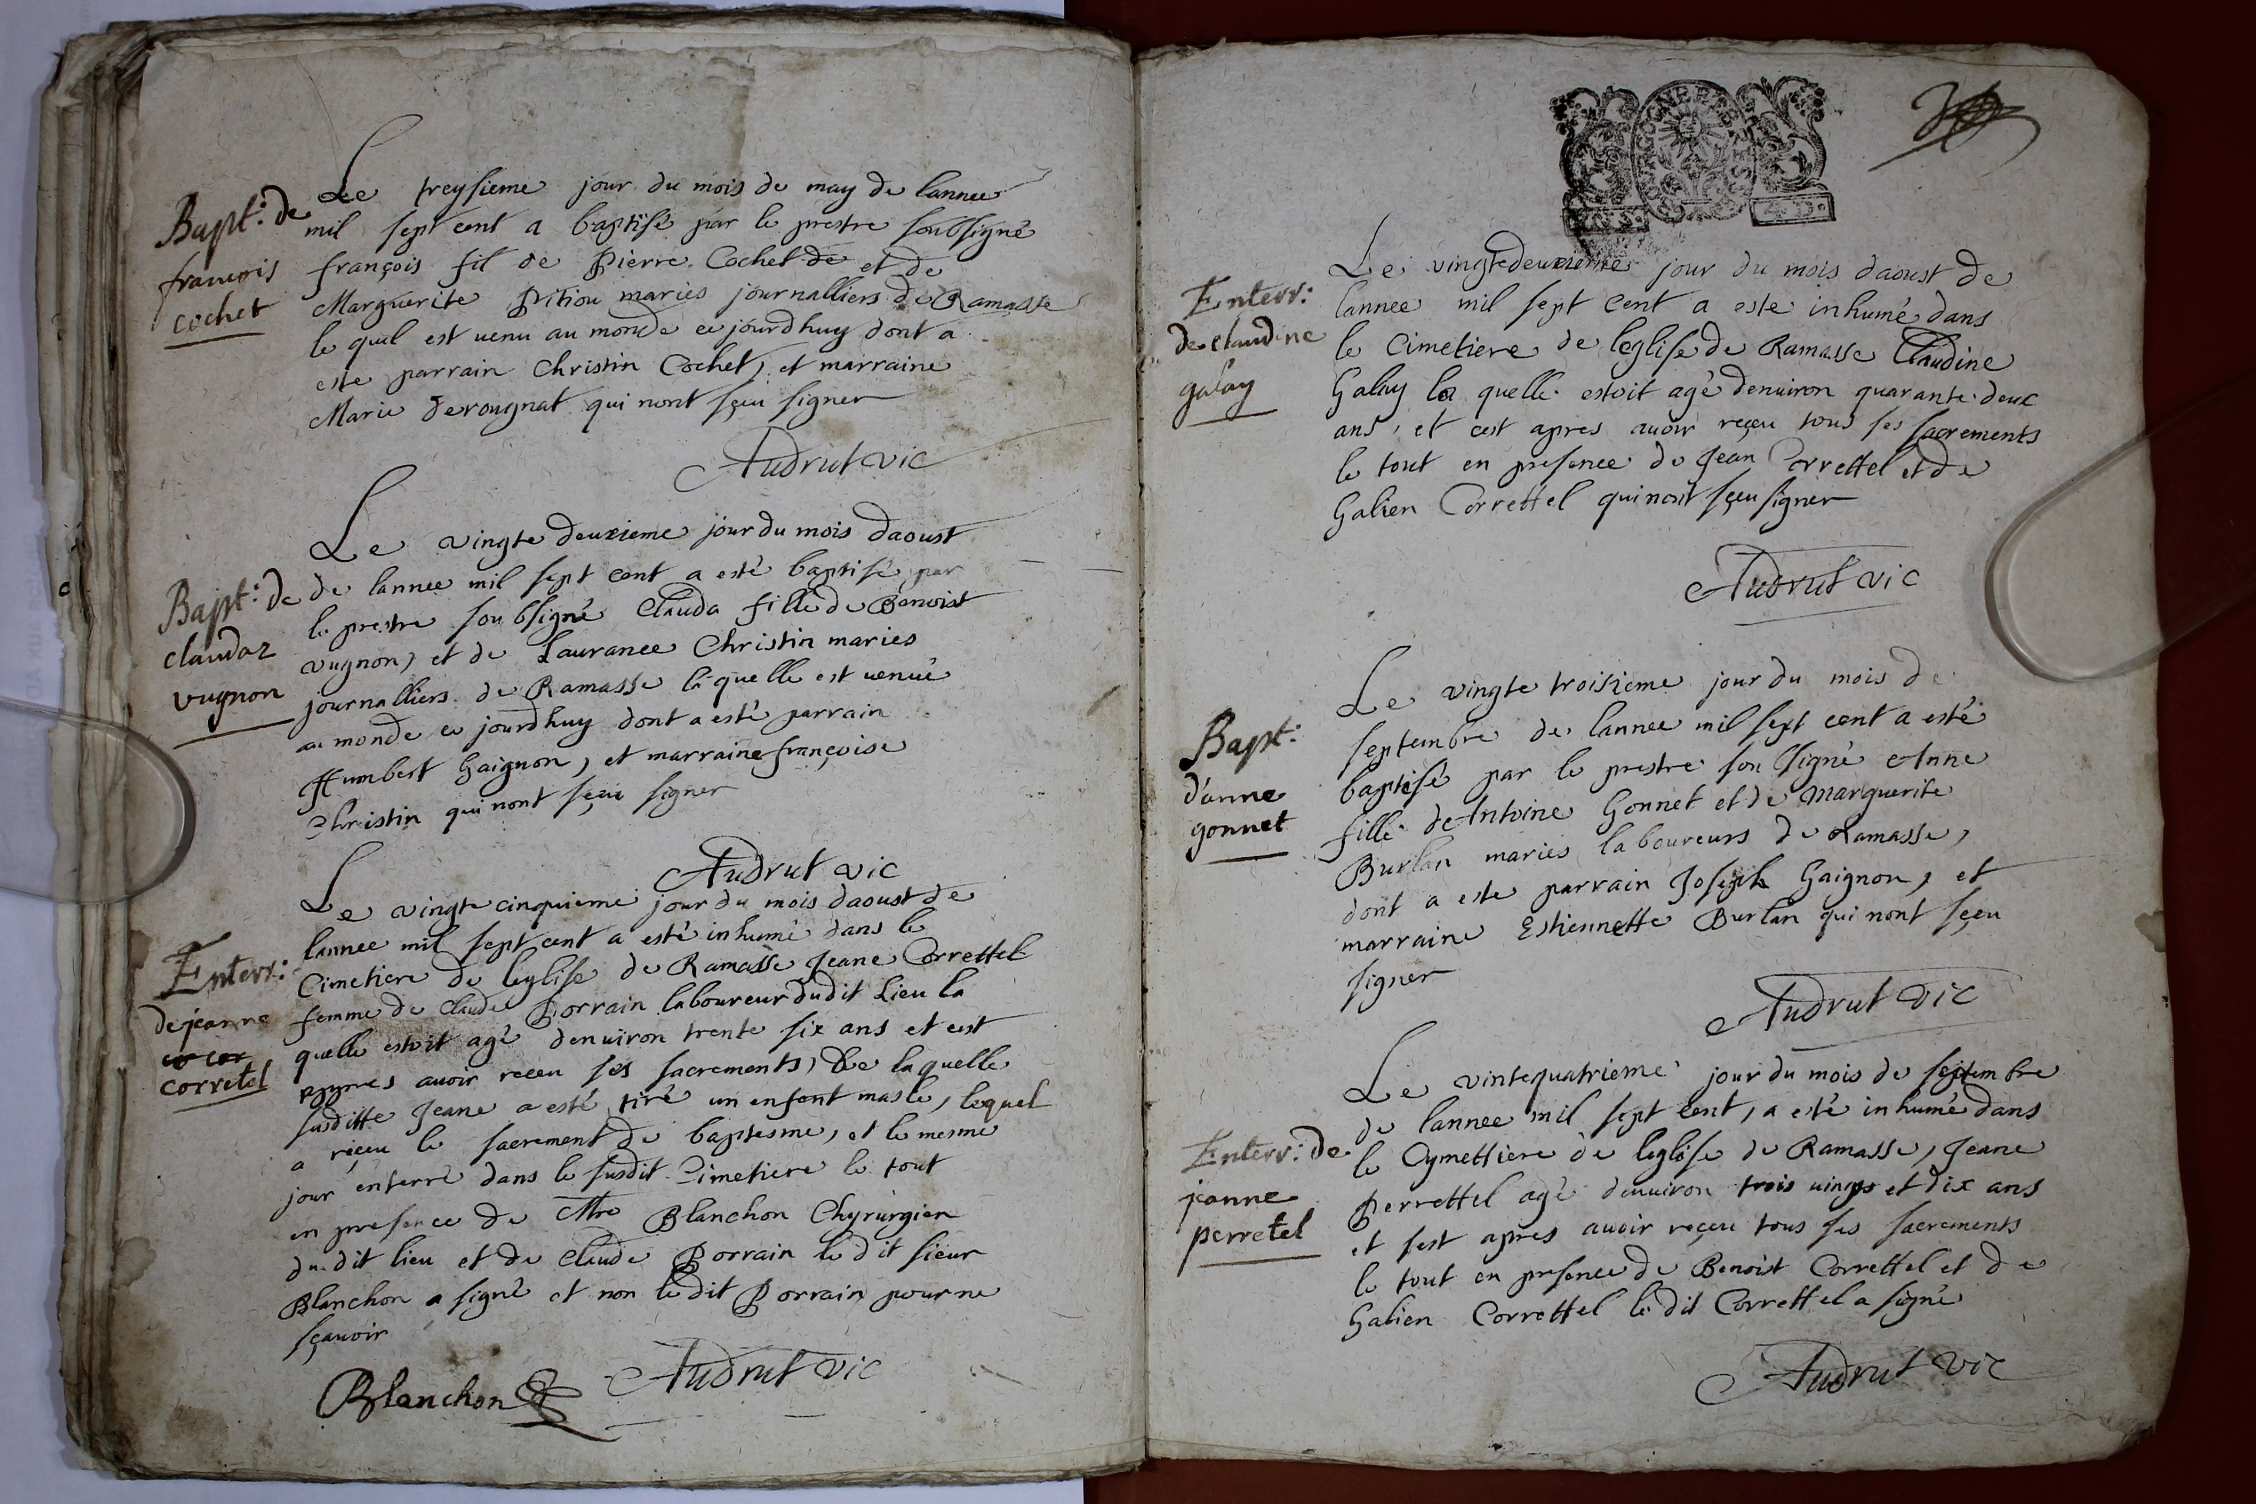 Bapt: de
francois
cochet
Le treysieme jour du mois de may de lannee
mil sept cent a baptisé par le prestre soubsigné
françois fil de Pierre Cochet de et de
Marguerite Pitiou mariés journalliers de Ramasse
le quel est venu au monde ce jourdhuy dont a
este parrain Christin Cochet, et marraine
Marie derougnat qui nont sçeu signer
Audrut vic
Bapt: de
claudaz
vugnon
Le vingte deuxieme jour du mois daoust
de lannee mil sept cent a esté baptisé par
le prestre soubsigné Clauda fille de Benoist
vugnon, et de Laurance Christin mariés
journalliers de Ramasse la quelle est venue
au monde ce jourdhuy dont a esté parrain
Humbert Gaignon, et marraine françoise
Christin qui nont sçeu signer
Audrut vic
Enterr:
de jeanne
co cor
corretel
Le vingte cinquieme jour du mois daoust de
lannee mil sept cent a esté inhumé dans le
Cimetiere de leglise de Ramasse Jeane Correttel
femme de Claude Porrain laboureur dudit Lieu la
quelle estoit agé denuiron trente six ans et cest
apprres auoir receu ses sacrements, De laquelle
susditte Jeane a esté tiré un enfent masle, lequel
a reçeu le sacrement de baptesme, et le mesme
jour enterré dans le susdit Cimetiere le tout
en presence de Mre Blanchon Chyrurgien
du dit lieu et de Claude Porrain le dit sieur
Blanchon a signé et non le dit Porrain pour ne
sçauoir
Blanchon Audrut vic
4 D.
Enterr:
de claudine
galay
Le vingtedeuxieme jour du mois daoust de
lannee mil sept cent a este inhumé dans
le Cimetiere de leglise de Ramasse Claudine
Galay la quelle estoit agé denuiron quarante deux
ans, et cest apres auoir reçeu tous ses sacrements
le tout en presence de Jean Correttel et de
Galien Correttel qui nont sçeu signer
Audrut vic
Bapt:
d'anne
gonnet
Le vingte troisieme jour du mois de
septembre de lannee mil sept cent a esté
baptisé par le prestre soubsigné Anne
fille de Antoine Gonnet et de Marguerite
Burlan mariés laboureurs de Ramasse,
dont a este parrain Joseph Gaignon, et
marraine Estiennette Burlan qui nont sçeu
signer
Audrut vic
Enterr: de
jeanne
perretel
Le vintequatrieme jour du mois de septembre
de lannee mil sept cent, a esté inhumé dans
le Cymettiere de leglise de Ramasse, Jeane
Perrettel agé denuiron trois uingts et dix ans
et sest apres auoir reçeu tous ses sacrements
le tout en presence de Benoist Correttel et de
Galien Correttel le dit Correttel a signé
Audrut vic